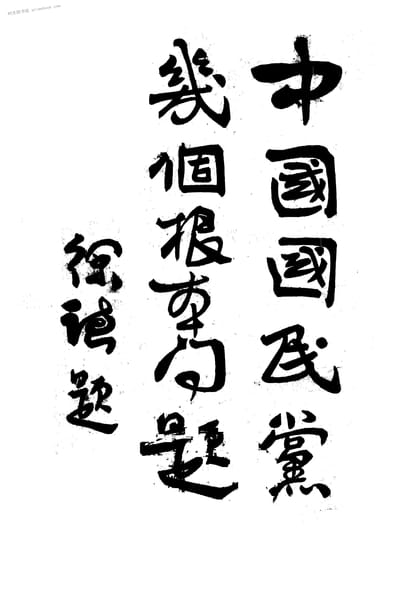 中國國民黨
幾個根本問題
徐謙題